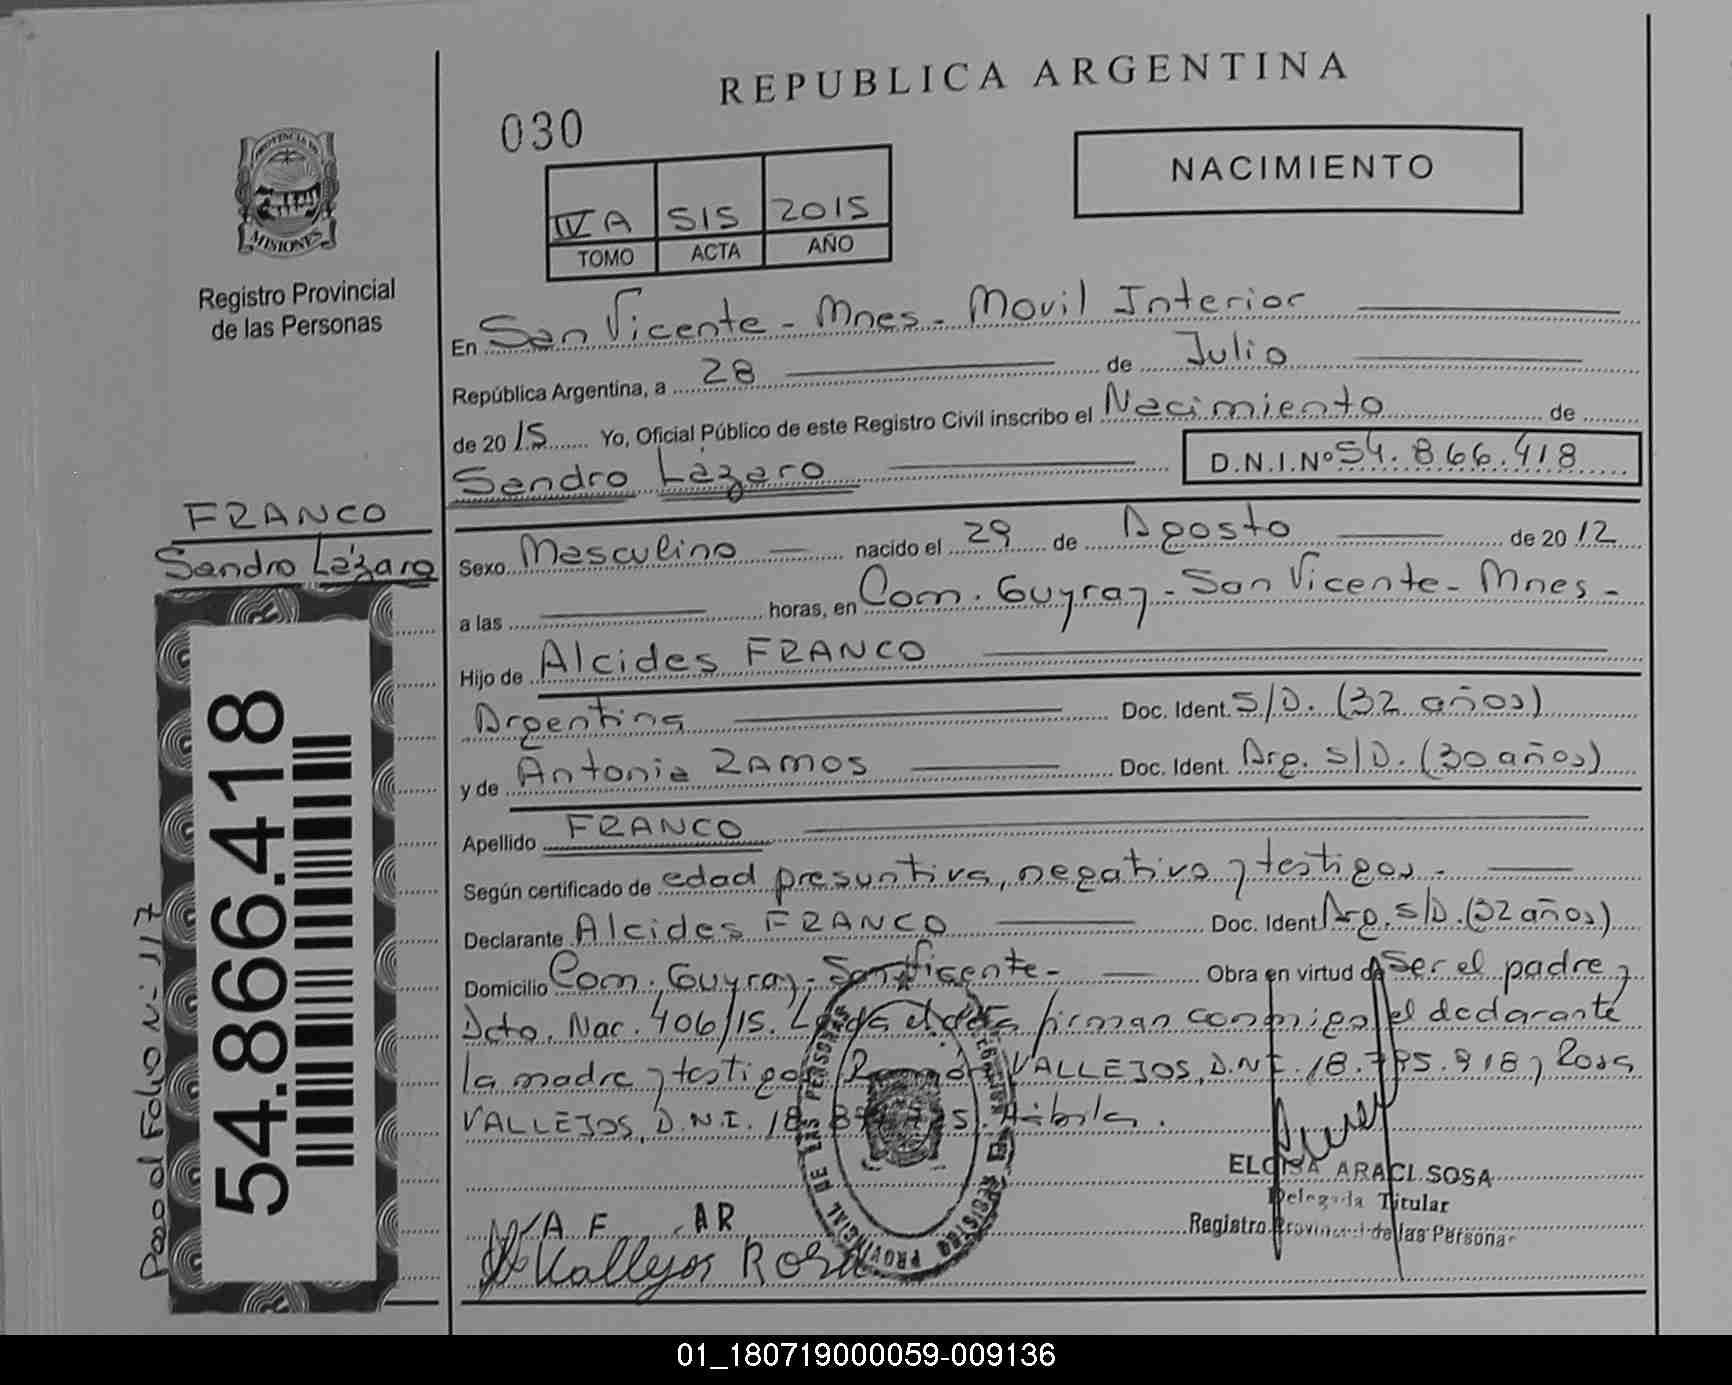 REPUBLICA ARGENTINA
030
NACIMIENTO
IV A 515 2015
TOMO ACTA AÑO
PROVINCIA DE
MISIONES
Registro Provincial
de las Personas
En San Vicente - Mnes - Movil Interior
República Argentina, a 28 de Julio
de 2015 Yo, Oficial Público de este Registro Civil inscribo el Nacimiento de
Sandro Lázaro D.N.I.Nº 54.866.418
FRANCO
Sandro Lázaro
Sexo Masculino nacido el 29 de Agosto de 2012
a las horas, en Com. Guyray - San Vicente - Mnes -
Hijo de Alcides FRANCO
Argentina Doc. Ident. S/D. (32 años)
y de Antonia RAMOS Doc. Ident. Arg. S/D. (30 años)
Apellido FRANCO
Según certificado de edad presuntiva, negativo y testigos.
Declarante Alcides FRANCO Doc. Ident Arg. S/D. (32 años)
Domicilio Com. Guyray - San Vicente - Obra en virtud de Ser el padre y
Dcto. Nac. 406/15. Leída el acta firman conmigo el declarante
la madre y testigos Ramón VALLEJOS, D.N.I. 18. 918 y Rosa
VALLEJOS, D.N.I. 18. Hábiles.
54.866.418
Paso al Folio Nº 117
REGISTRO PROVINCIAL DE LAS PERSONAS
ELOISA ARACI SOSA
Delegada Titular
Registro Provincial de las Personas
A F AR
Vallejos Rosa
01_180719000059-009136